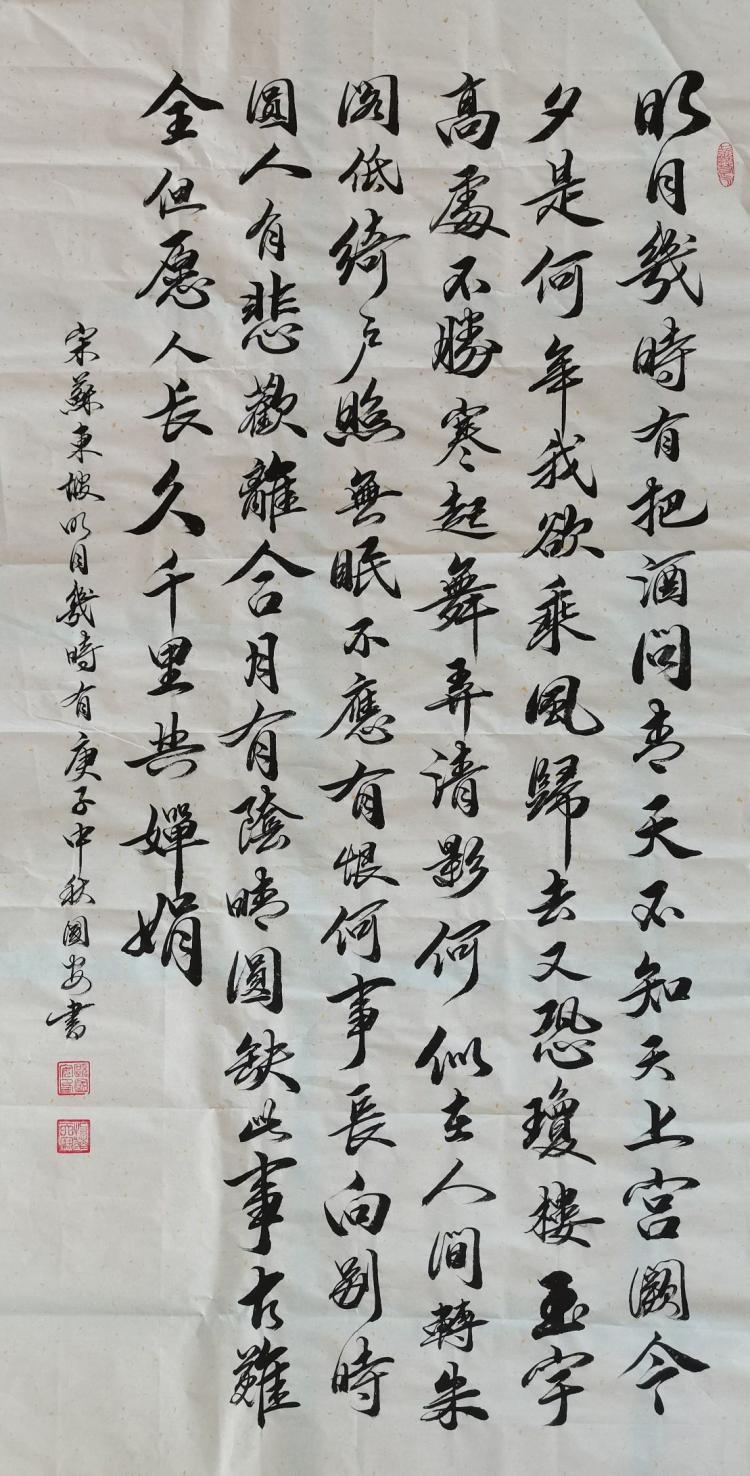 明月幾時有把酒問青天不知天上宮闕今
夕是何年我欲乘風歸去又恐瓊樓玉宇
高處不勝寒起舞弄清影何似在人間轉朱
閣低綺户照無眠不應有恨何事長向别時
圓人有悲歡離合月有陰晴圓缺此事古難
全但愿人长久千里共嬋娟
宋蘇東坡明月幾時有庚子中秋國安書